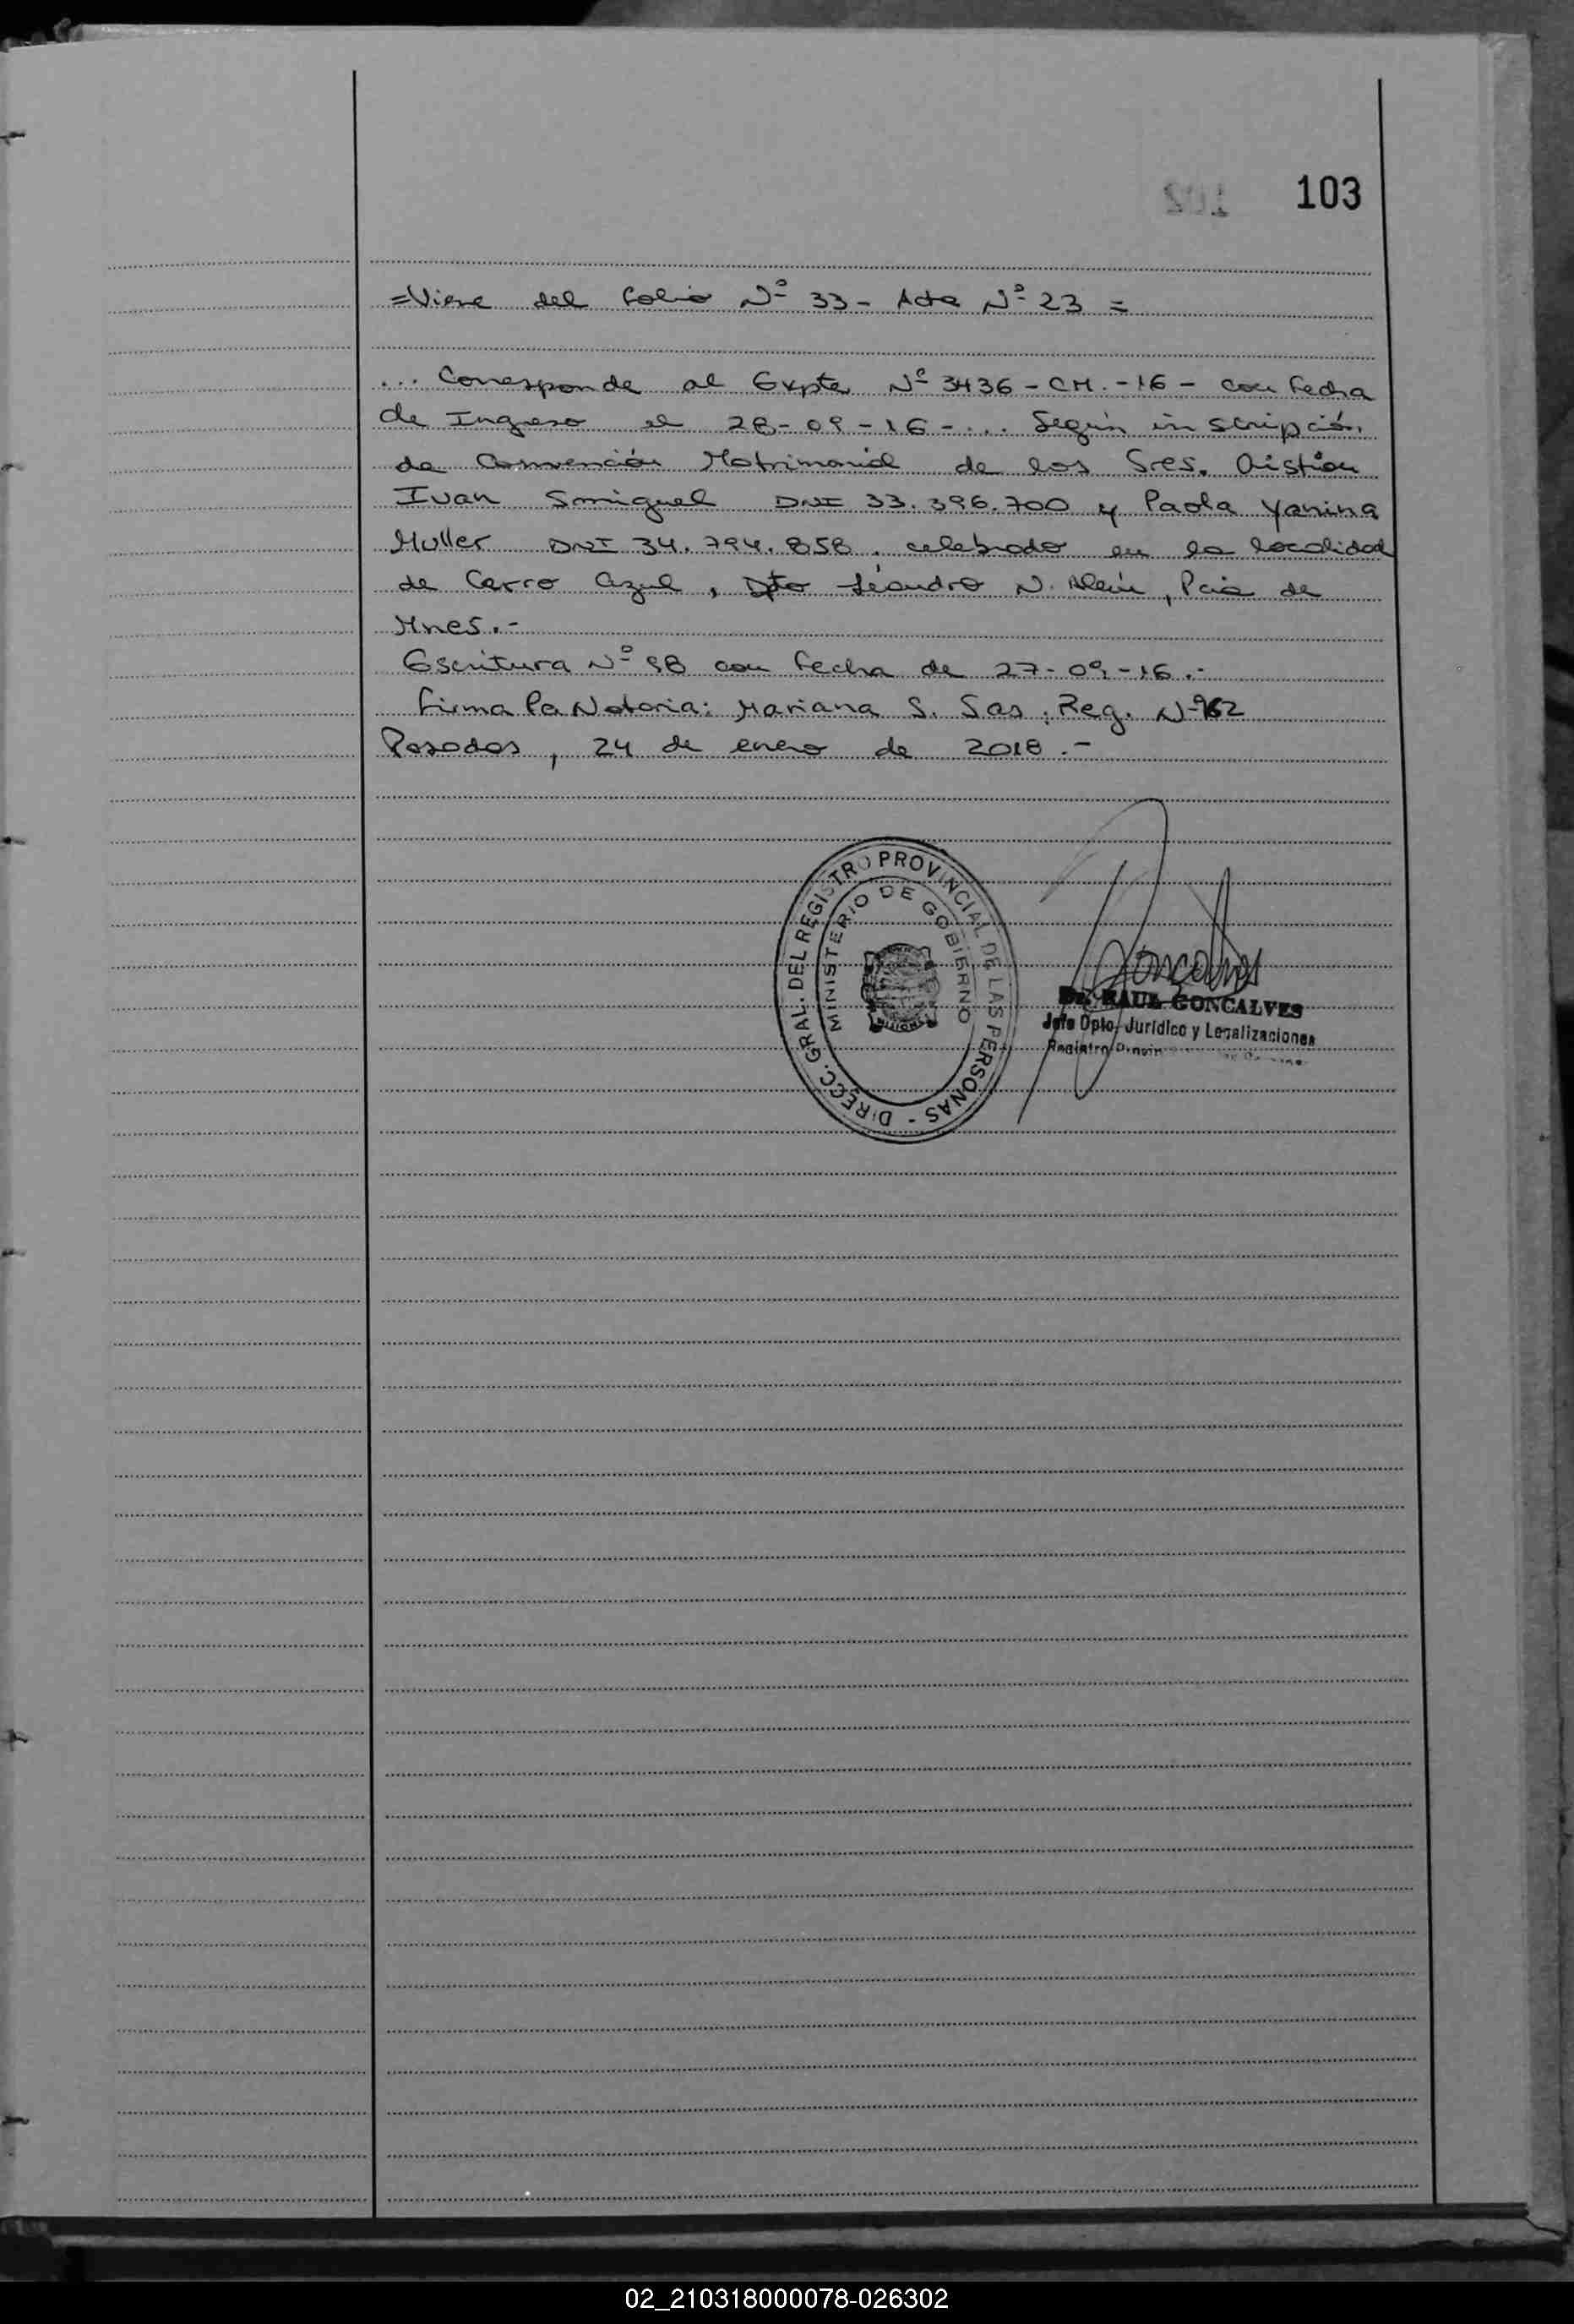 103
=Viene del folio Nº 33- Acta Nº 23 =
... Corresponde al Expte Nº 3436 - CM. - 16 - con fecha
de Ingreso el 28-09-16-... Según inscripción
de Convención Matrimonial de los Sres. Cristian
Ivan Smiguel DNI 33.396.700 y Paola Yanina
Muller DNI 34.794.858. celebrado en la localidad
de Cerro Azul, Dpto Leandro N. Alem, Pcia de
Mnes.-
Escritura Nº 98 con fecha de 27-09-16.-
firma la Notaria: Mariana S. Sas, Reg. Nº
Posadas, 24 de enero de 2018.-
DIRECC. GRAL. DEL REGISTRO PROVINCIAL DE LAS PERSONAS -
MINISTERIO DE GOBIERNO
MISIONES
Goncalves
Dr. RAUL GONCALVES
Jefe Dpto. Jurídico y Legalizaciones
Registro
02_210318000078-026302